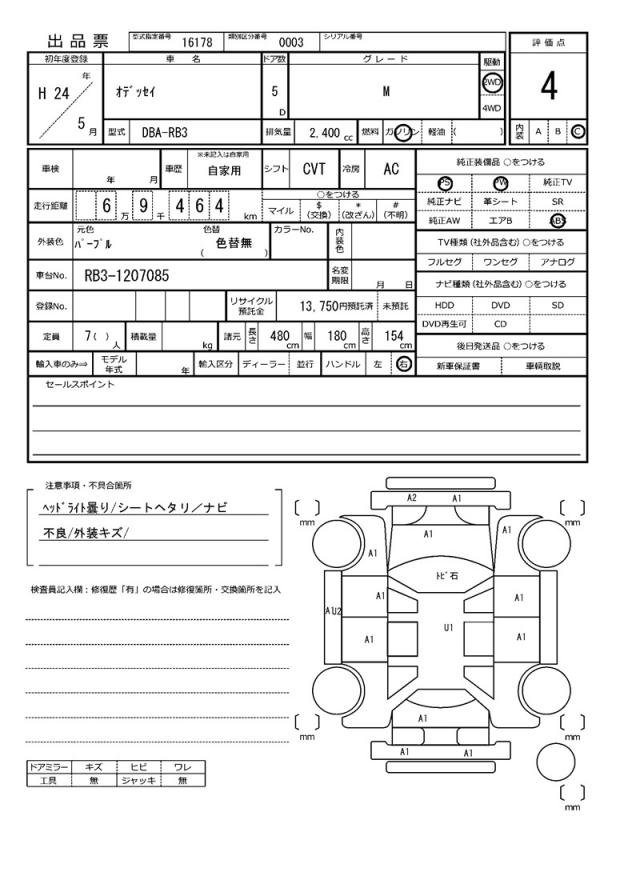 出品票 型式指定番号 16178 類別区分番号 0003 シリアル番号
評価点
4
内装 A B C
初年度登録 車名 ドア数 グレード 駆動
H 24 年 5 月
ｵﾃﾞｯｾｲ 5 D M 2WD 4WD
型式 DBA-RB3 排気量 2,400 cc 燃料 ガソリン 軽油 ( )
車検 年 月 車歴 ※未記入は自家用 自家用 シフト CVT 冷房 AC
走行距離 6 万 9 千 4 6 4 km
○をつける
マイル $(交換) *(改ざん) #(不明)
外装色 元色 ﾊﾟｰﾌﾟﾙ 色替 ( 色替無 ) カラーNo. 内装色
車台No. RB3-1207085 名変期限 月 日
登録No. リサイクル預託金 13,750円預託済 未預託
定員 7( ) 人 積載量 kg 諸元 長さ 480 cm 幅 180 cm 高さ 154 cm
輸入車のみ⇒ モデル年式 年 輸入区分 ディーラー 並行 ハンドル 左 右
純正装備品 ○をつける
PS PW 純正TV
純正ナビ 革シート SR
純正AW エアB ABS
TV種類(社外品含む)○をつける
フルセグ ワンセグ アナログ
ナビ種類(社外品含む)○をつける
HDD DVD SD
DVD再生可 CD
後日発送品 ○をつける
新車保証書 車輌取説
セールスポイント
注意事項・不具合箇所
ﾍｯﾄﾞﾗｲﾄ曇り/シートヘタリ／ナビ
不良/外装キズ/
検査員記入欄：修復歴「有」の場合は修復箇所・交換箇所を記入
ドアミラー キズ ヒビ ワレ
工具 無 ジャッキ 無
A2 A1
[ ] mm [ ] mm
A1
A1 A1
ﾄﾋﾞ石
A1 A1
A1U2
U1
A1 A1
A1
[ ] mm [ ] mm
A1 A1
[ ] mm